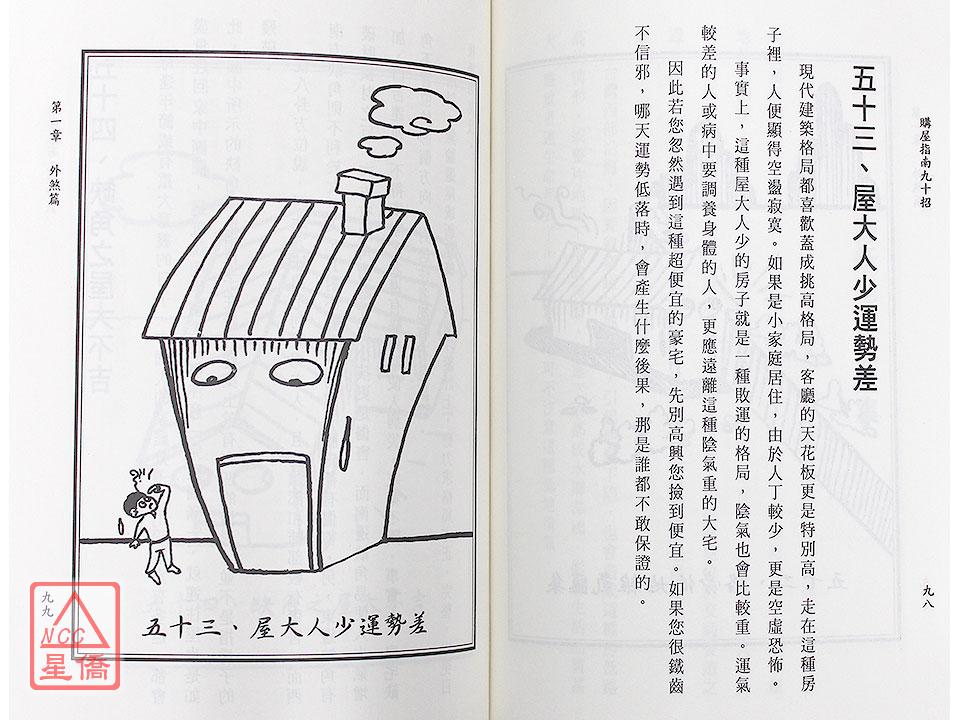 購屋指南九十招
五十三、屋大人少運勢差
現代建築格局都喜歡蓋成挑高格局，客廳的天花板更是特別高，走在這種房
子裡，人便顯得空盪寂寞。如果是小家庭居住，由於人丁較少，更是空虛恐怖。
事實上，這種屋大人少的房子就是一種敗運的格局，陰氣也會比較重。運氣
較差的人或病中要調養身體的人，更應遠離這種陰氣重的大宅。
因此若您忽然遇到這種超便宜的豪宅，先別高興您撿到便宜。如果您很鐵齒
不信邪，哪天運勢低落時，會產生什麼後果，那是誰都不敢保證的。
九八
第一章　外煞篇
五十三、屋大人少運勢差
九九
NCC
星僑